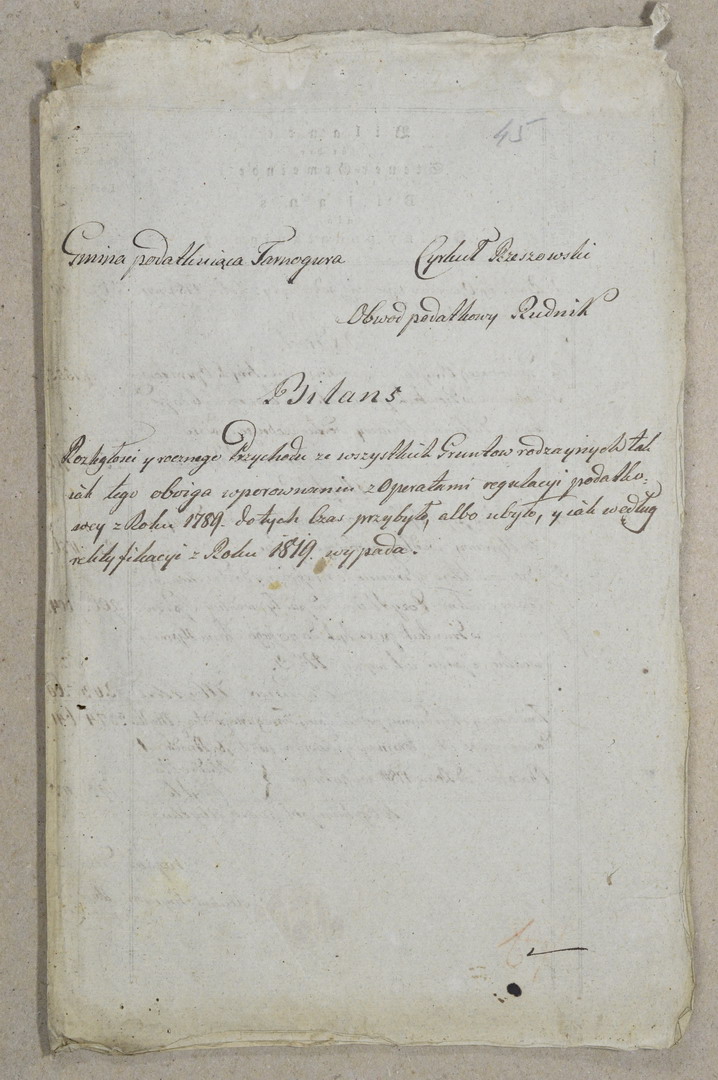 45
Gmina podatkuiąca Tarnogura
Cyrkuł Rzeszowski
Obwod podatkowy Rudnik
Bilans
Rozległosci y rocznego Przychodu ze wszystkich Gruntow rodzaynych tak
iak tego oboyga w porownaniu z Operatami regulacyi podatko=
wey z Roku 1789. do tych Czas przybyło, albo ubyło, y iak według
rektyfikacyi z Roku 1819. wypada.